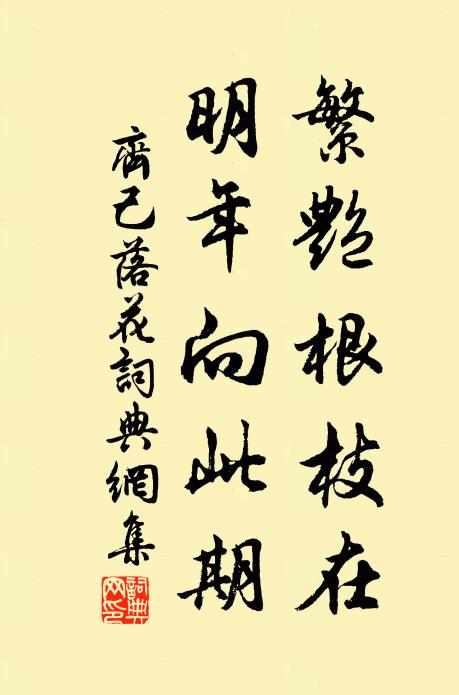 繁艷根枝在
明年向此期
齊己落花詞典網集
詞典网印